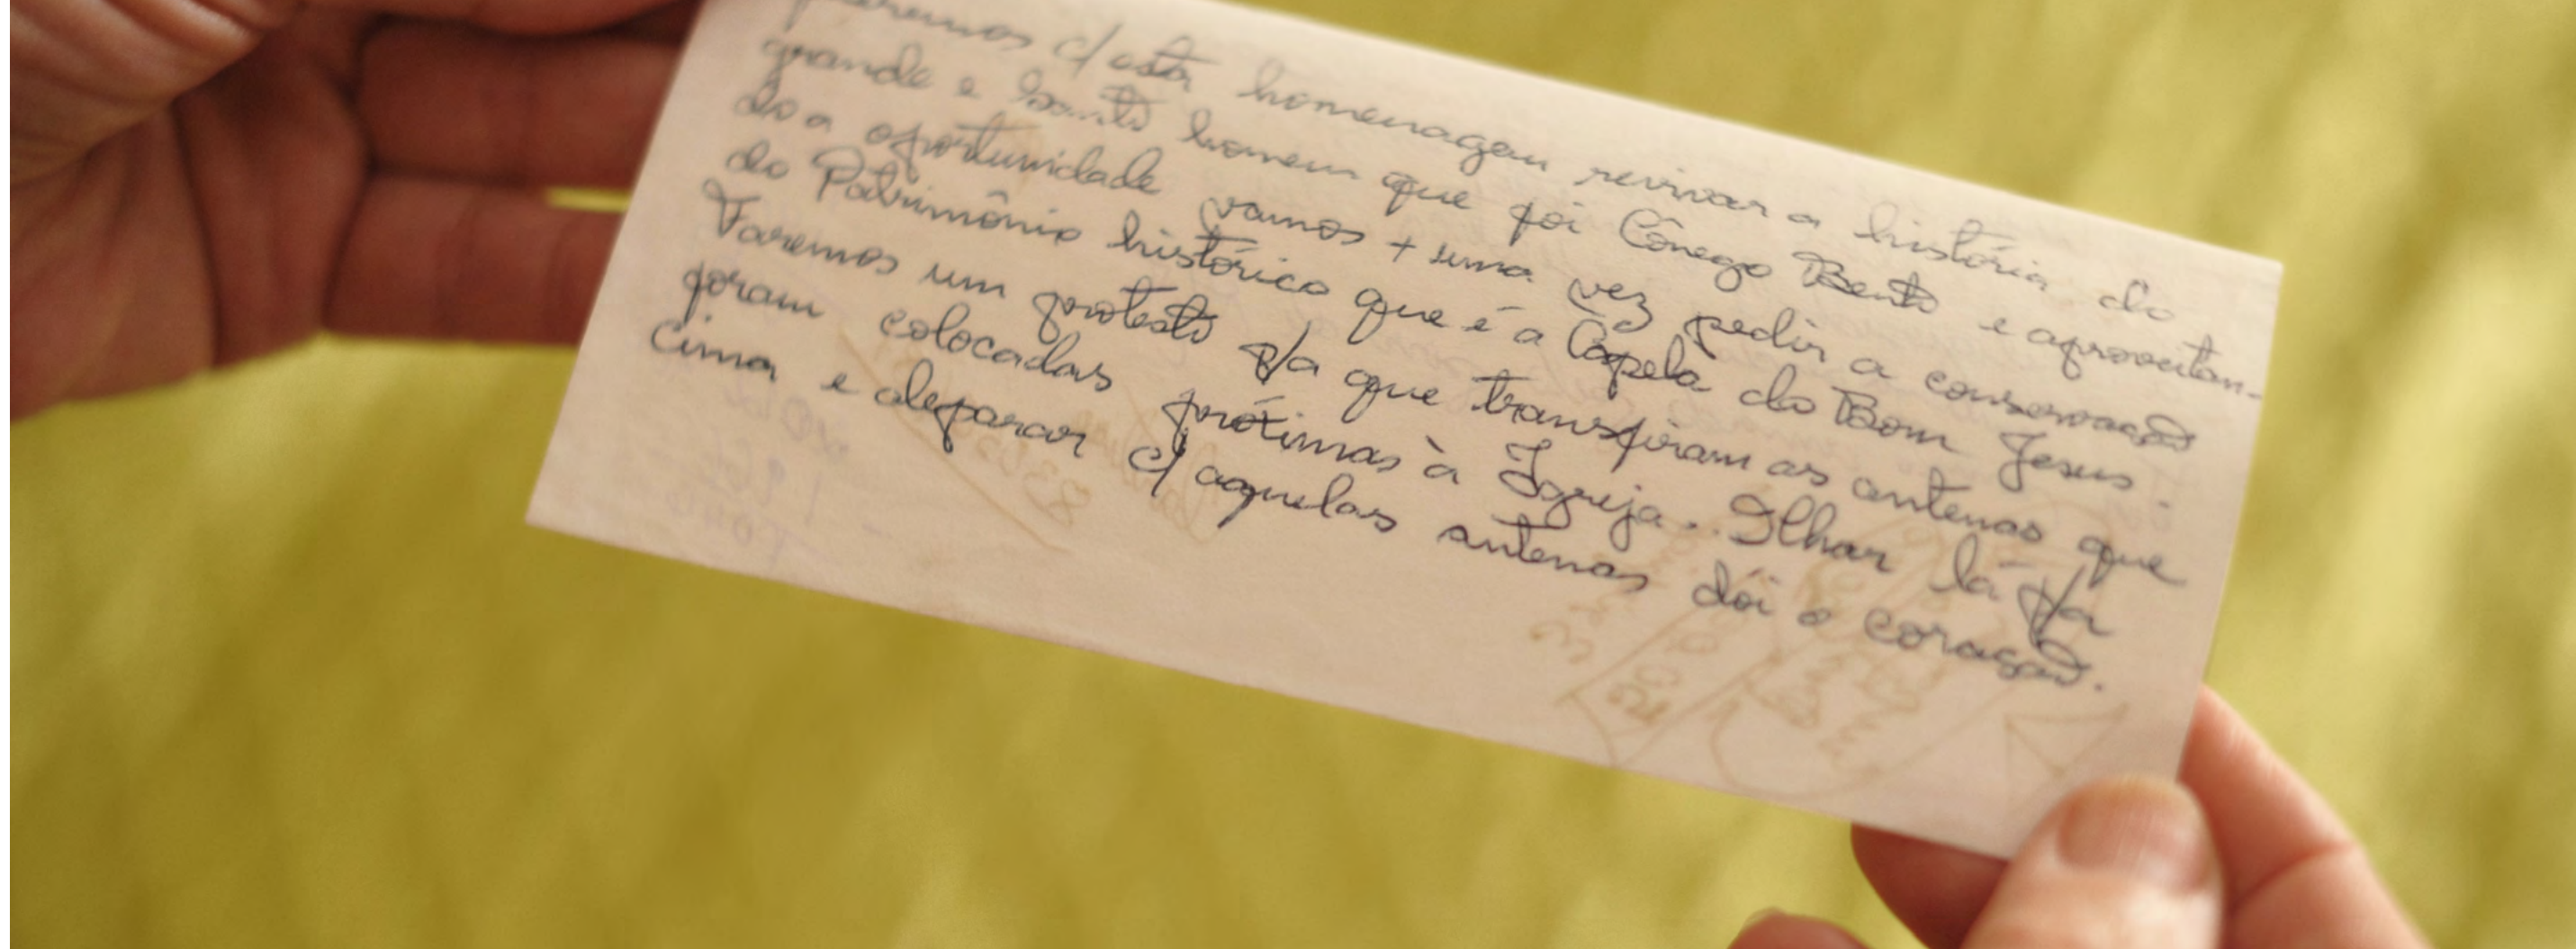 queremos c/ esta homenagem revivar a história do
grande e Santo homem que foi Cônego Bento e aproveitan-
do a oportunidade vamos + uma vez pedir a conservação
do Patrimônio histórico que é a Capela do Bom Jesus.
Faremos um protesto p/a que transfiram as antenas que
foram colocadas próximas à Igreja. Olhar lá p/a
cima e deparar c/ aquelas antenas dói o coração.